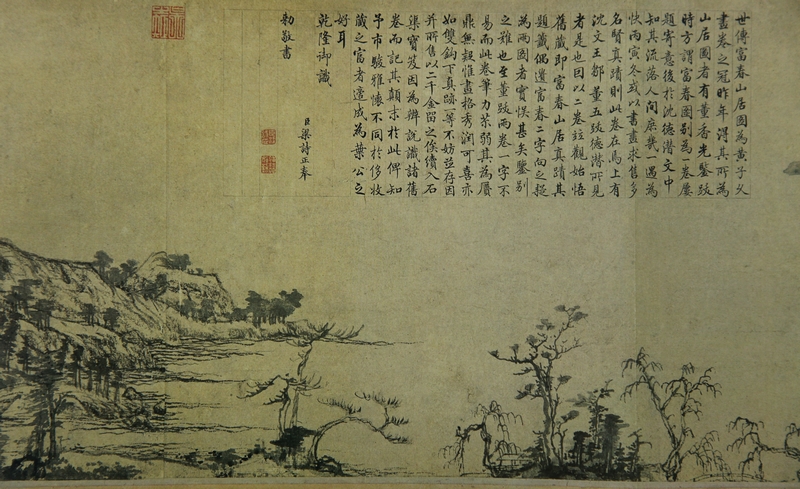 世傳富春山居圖為黃子久
畫卷之冠昨年得其所為
山居圖者有董香光鑒跋
時方謂富春圖別為一卷屢
題寄意後於沈德潛文中
知其流落人間庶幾一遇為
快丙寅冬或以書畫求售多
名賢真蹟則此卷在焉上有
沈文王鄒董五跋德潛所見
者是也因以二卷竝觀始悟
舊藏即富春山居真蹟其
題籤偶遺富春二字向之疑
為兩圖者實悮甚矣鑒別
之難也至董跋兩卷一字不
易而此卷筆力苶弱其為贗
鼎無疑惟畫格秀潤可喜亦
如雙鈎下真跡一等不妨竝存因
并所售以二千金留之俟續入石
渠寶笈因為辨說識諸舊
卷而記其顛末於此俾知
予市駿雅懷不同於侈收
藏之富者遑成為葉公之
好耳
乾隆御識
臣梁詩正奉
勅敬書